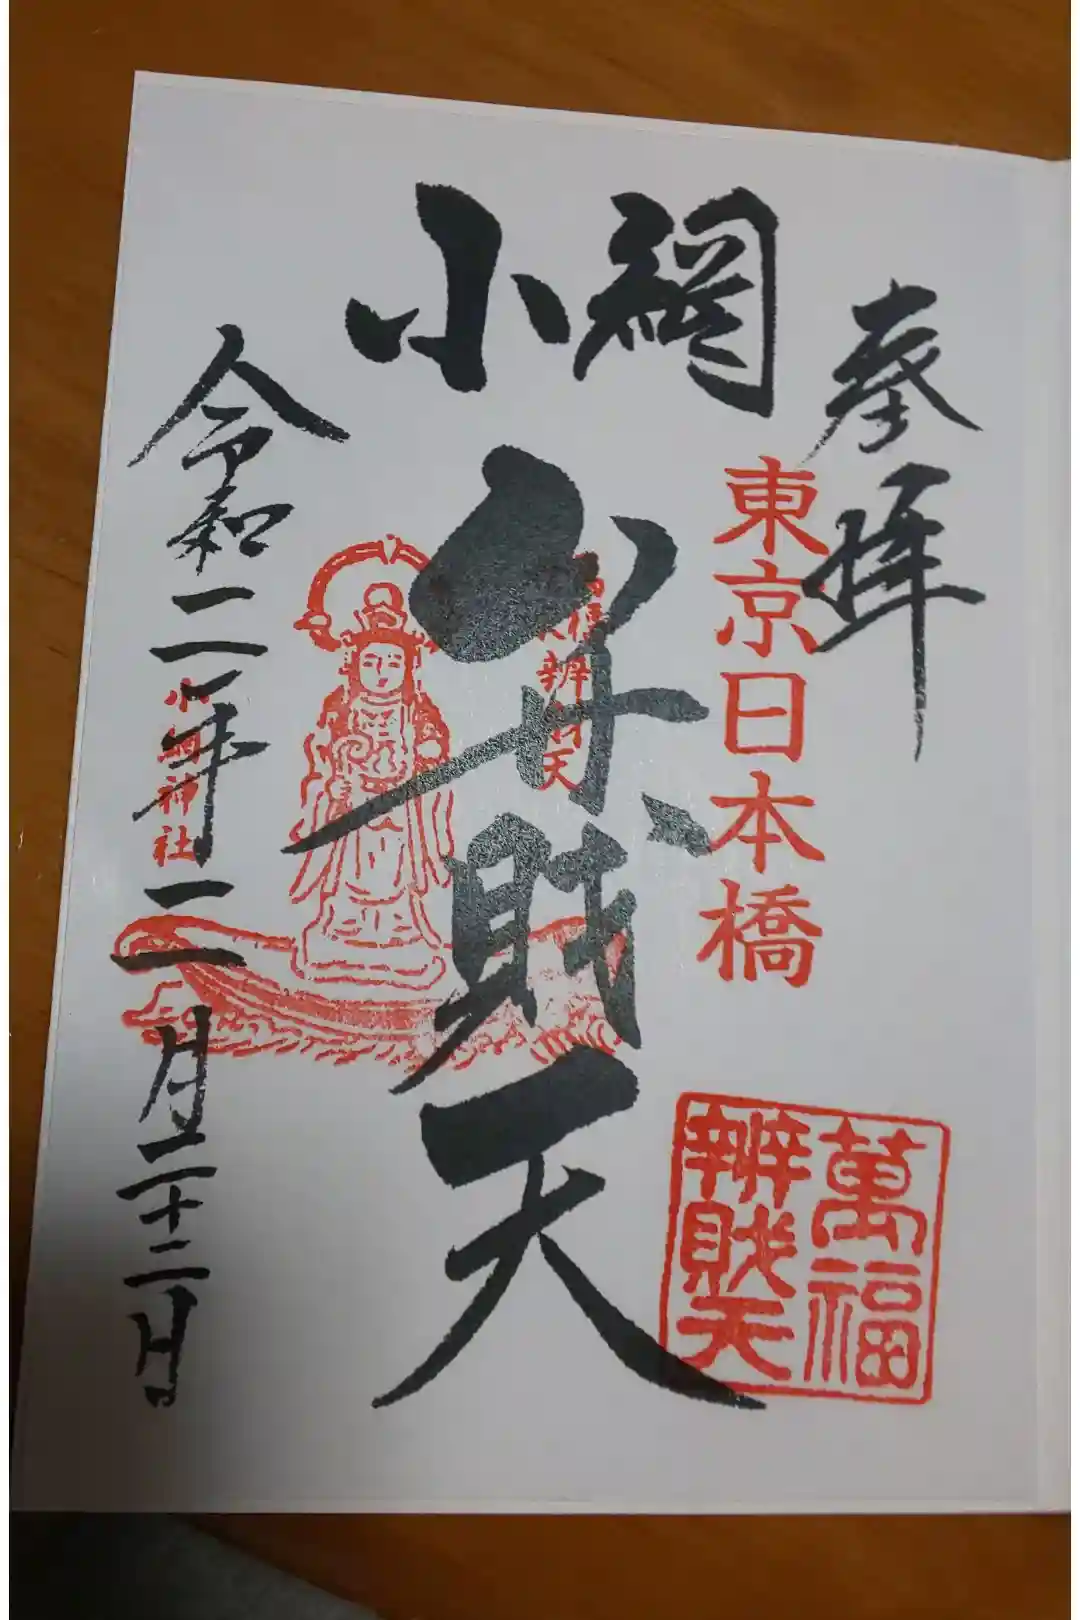 奉拝
東京日本橋
萬福
辨財天
小網
弁財天
令和二年二月二十二日
小網神社